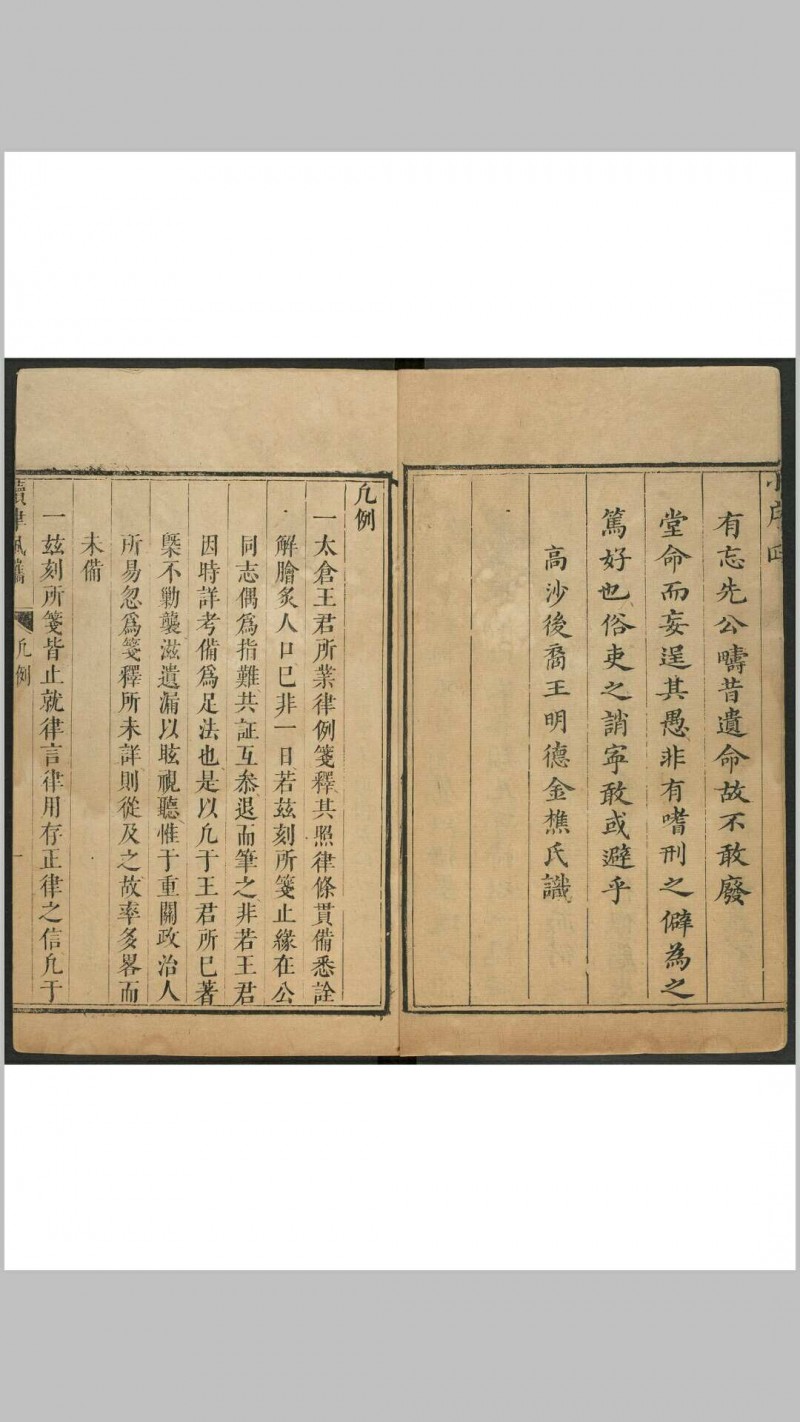 小序四
有忘先公疇昔遺命故不敢廢
堂命而妄逞其愚非有嗜刑之僻為之
篤好也俗吏之誚寧敢或避乎
高沙後裔王明德金樵氏識
凡例
一太倉王君所業律例箋釋其照律條貫備悉詮
解膾炙人口已非一日若玆刻所箋止緣在公
同志偶爲指難共証互叅退而筆之非若王君
因時詳考備爲足法也是以凢于王君所已著
槩不勦襲滋遺漏以眩視聽惟于重關政治人
所易忽爲箋釋所未詳則從及之故率多畧而
未備
一玆刻所箋皆止就律言律用存正律之信凢于
讀律佩觿
凢例
一